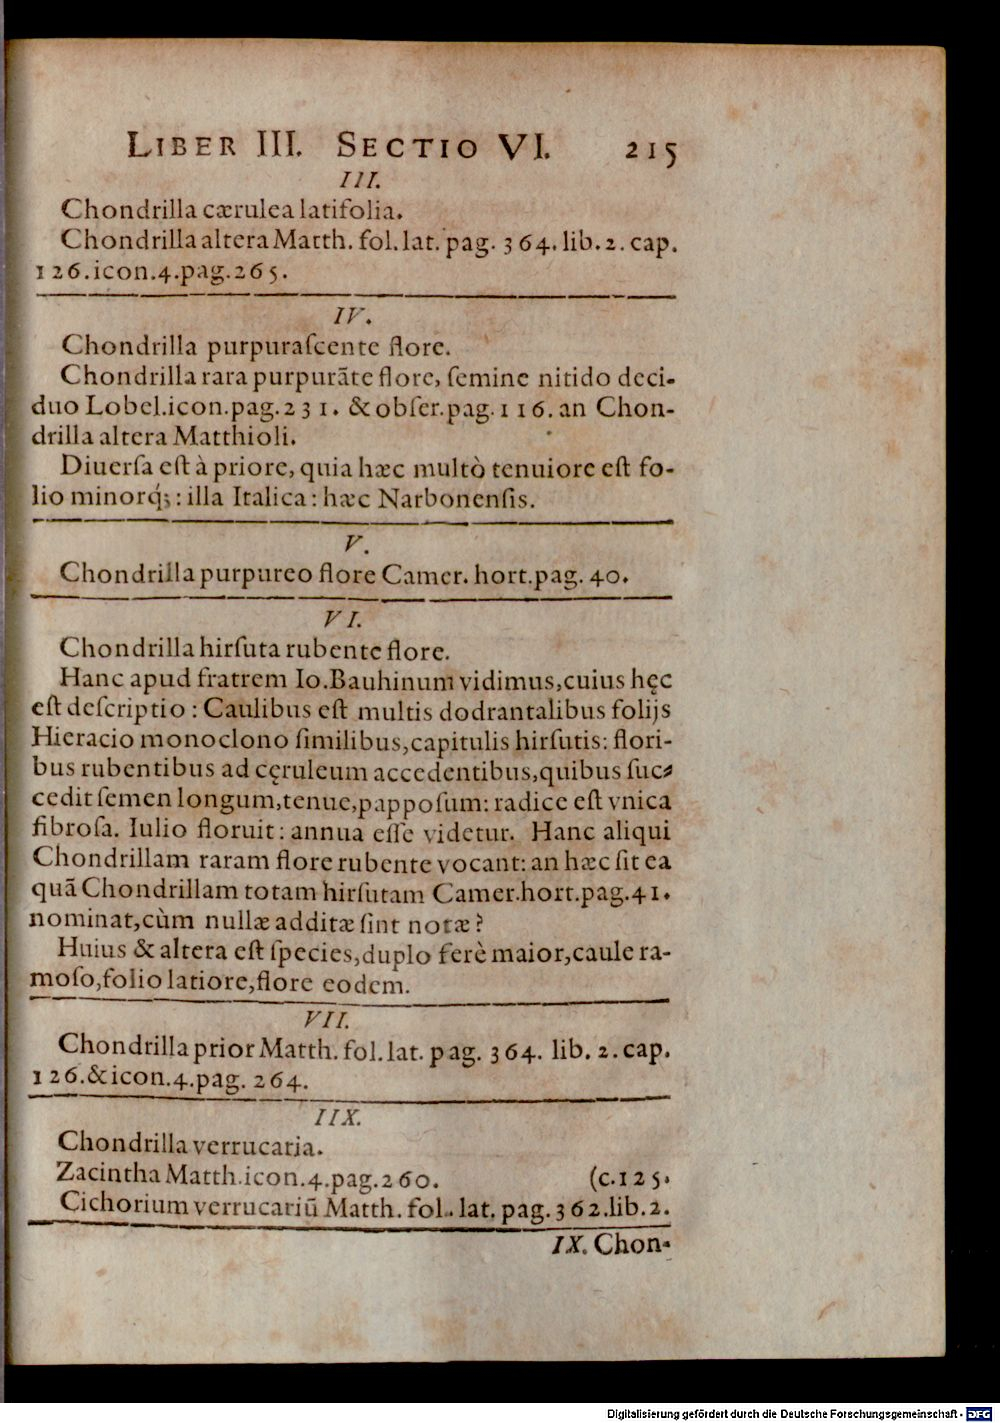 LIBER III. SECTIO VI. 215
III.
Chondrilla cærulea latifolia.
Chondrilla altera Matth. fol. lat. pag. 364. lib. 2. cap.
126. icon. 4. pag. 265.
IV.
Chondrilla purpuraſcente flore.
Chondrilla rara purpurãte flore, ſemine nitido deci-
duo Lobel. icon. pag. 231. & obſer. pag. 116. an Chon-
drilla altera Matthioli.
Diuerſa eſt à priore, quia hæc multò tenuiore eſt fo-
lio minorq́ꝫ: illa Italica: hæc Narbonenſis.
V.
Chondrilla purpureo flore Camer. hort. pag. 40.
VI.
Chondrilla hirſuta rubente flore.
Hanc apud fratrem Io. Bauhinum vidimus, cuius hęc
eſt deſcriptio: Caulibus eſt multis dodrantalibus folijs
Hieracio monoclono ſimilibus, capitulis hirſutis: flori-
bus rubentibus ad cęruleum accedentibus, quibus ſuc-
cedit ſemen longum, tenue, pappoſum: radice eſt vnica
fibroſa. Iulio floruit: annua eſſe videtur. Hanc aliqui
Chondrillam raram flore rubente vocant: an hæc ſit ea
quã Chondrillam totam hirſutam Camer. hort. pag. 41.
nominat, cùm nullæ additæ ſint notæ?
Huius & altera eſt ſpecies, duplo ferè maior, caule ra-
moſo, folio latiore, flore eodem.
VII.
Chondrilla prior Matth. fol. lat. pag. 364. lib. 2. cap.
126. & icon. 4. pag. 264.
IIX.
Chondrilla verrucaria.
Zacintha Matth. icon. 4. pag. 260. (c. 125.
Cichorium verrucariũ Matth. fol. lat. pag. 362. lib. 2.
IX. Chon-
Digitalisierung gefördert durch die Deutsche Forschungsgemeinschaft - DFG